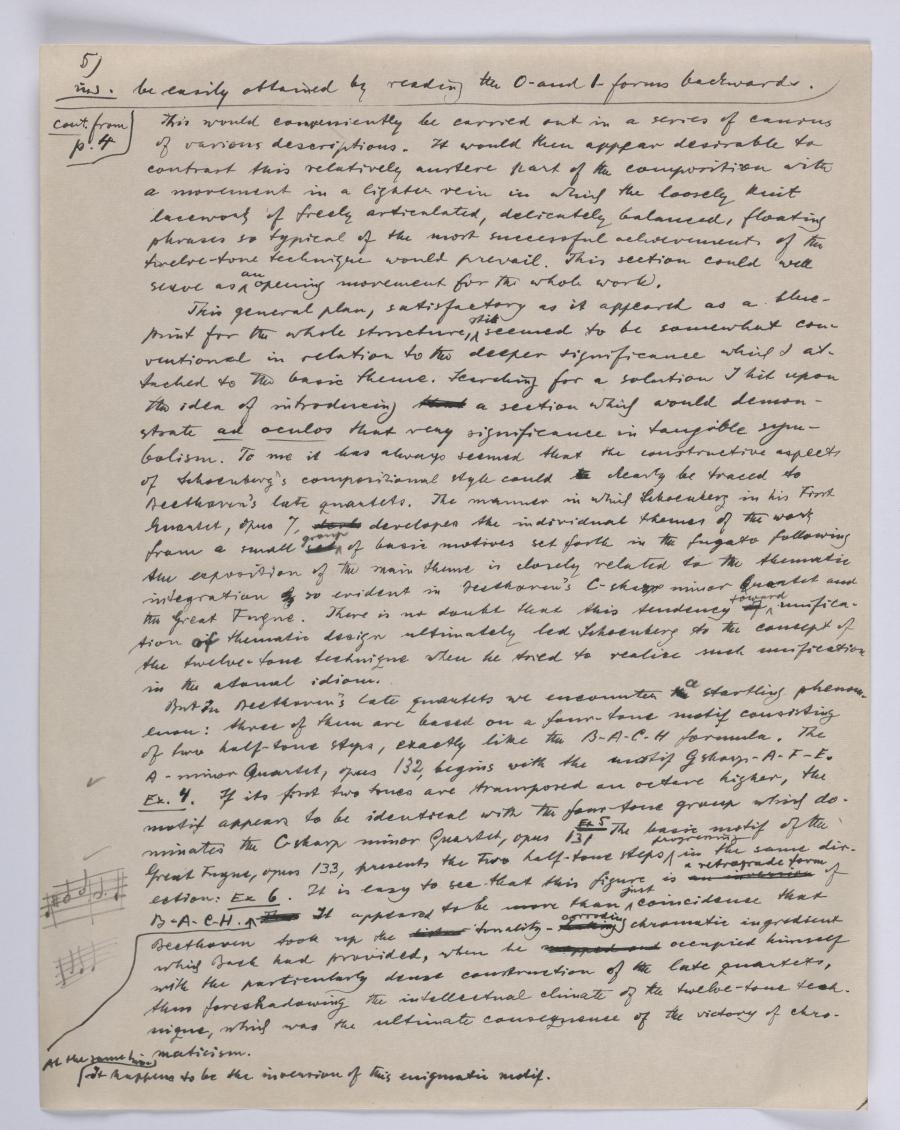 5)
ins. be easily obtained by reading the O- and I-forms backwards.
cont. from
p. 4
This would conveniently be carried out in a series of canons
of various descriptions. It would then appear desirable to
contrast this relatively austere part of the composition with
a movement in a lighter vein in which the loosely knit
lacework of freely articulated, delicately balanced, floating
phrases so typical of the most successful achievements of the
twelve-tone technique would prevail. This section could well
serve as an opening movement for the whole work.
This general plan, satisfactory as it appeared as a blue-
print for the whole structure, still seemed to be somewhat con-
ventional in relation to the deeper significance which I at-
tached to the basic theme. Searching for a solution I hit upon
the idea of introducing a section which would demon-
strate ad oculos that very significance in tangible sym-
bolism. To me it has always seemed that the constructive aspects
of Schoenberg's compositional style could clearly be traced to
Beethoven's late quartets. The manner in which Schoenberg in his First
Quartet, opus 7, developes the individual themes of the work
from a small group of basic motives set forth in the fugato following
the exposition of the main theme is closely related to the thematic
integration so evident in Beethoven's C-sharp minor Quartet and
the Great Fugue. There is no doubt that this tendency toward unifica-
tion of thematic design ultimately led Schoenberg to the concept of
the twelve-tone technique when he tried to realize such unification
in the atonal idiom.
But in Beethoven's late quartets we encounter a startling phenom-
enon: three of them are based on a four-tone motif consisting
of two half-tone steps, exactly like the B-A-C-H formula. The
A-minor Quartet, opus 132, begins with the motif G sharp-A-F-E.
Ex. 4. If its first two tones are transposed an octave higher, the
motif appears to be identical with the four-tone group which do-
minates the C-sharp minor Quartet, opus 131 Ex 5 The basic motif of the
Great Fugue, opus 133, presents the two half-tone steps progressing in the same dir-
ection: Ex 6. It is easy to see that this figure is a retrograde form of
B-A-C-H. It appeared to be more than just coincidence that
Beethoven took up the tonality-corroding chromatic ingredient
which Bach had provided, when he occupied himself
with the particularly dense construction of the late quartets,
thus foreshadowing the intellectual climate of the twelve-tone tech-
nique, which was the ultimate consequence of the victory of chro-
maticism.
At the same time
it happens to be the inversion of this enigmatic motif.